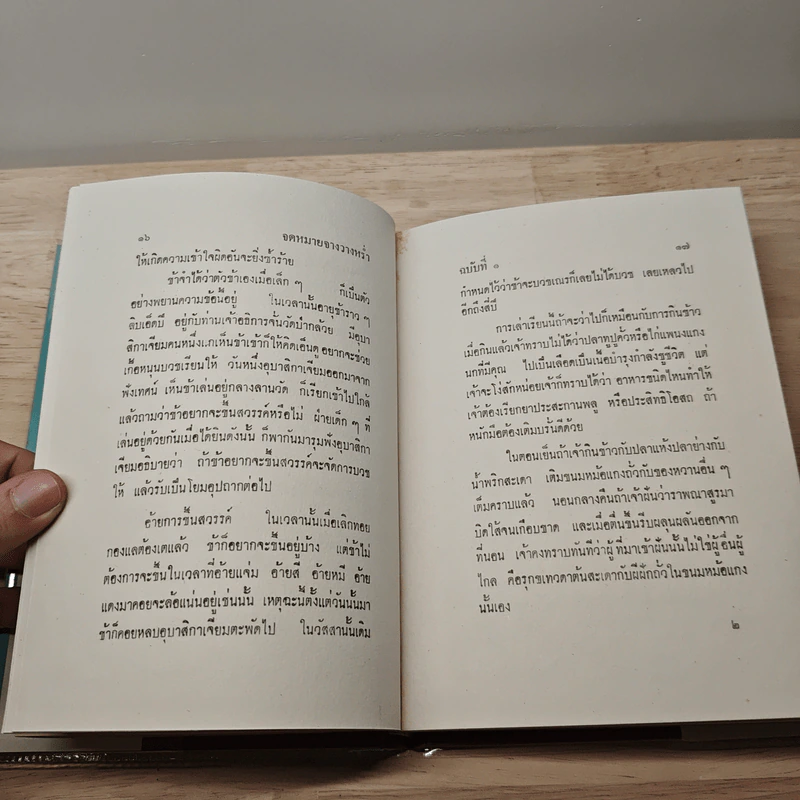 ๑๖ จดหมายจางวางหร่ำ
ให้เกิดความเข้าใจผิดอันจะยิ่งซ้ำร้าย
ข้าจำได้ว่าตัวข้าเองเมื่อเด็ก ๆ ก็เป็นตัว
อย่างพยานความข้อนี้อยู่ ในเวลานั้นอายุข้าราว ๆ
สิบเอ็ดปี อยู่กับท่านเจ้าอธิการจั่นวัดป่ากล้วย มีอุบา
สิกาเจียมคนหนึ่งแกเห็นข้าเข้าก็ให้คิดเอ็นดู อยากจะช่วย
เกื้อหนุนบวชเรียนให้ วันหนึ่งอุบาสิกาเจียมออกมาจาก
ฟังเทศน์ เห็นข้าเล่นอยู่กลางลานวัด ก็เรียกเข้าไปใกล้
แล้วถามว่าข้าอยากจะขึ้นสวรรค์หรือไม่ ฝ่ายเด็ก ๆ ที่
เล่นอยู่ด้วยกันเมื่อได้ยินดังนั้น ก็พากันมารุมฟังอุบาสิกา
เจียมอธิบายว่า ถ้าข้าอยากจะขึ้นสวรรค์จะจัดการบวช
ให้ แล้วรับเป็นโยมอุปถากต่อไป
อ้ายการขึ้นสวรรค์ ในเวลานั้นเมื่อเลิกทอย
กองแลต้องเตแล้ว ข้าก็อยากจะขึ้นอยู่บ้าง แต่ข้าไม่
ต้องการจะขึ้นในเวลาที่อ้ายแจ่ม อ้ายสี อ้ายหมี อ้าย
แดงมาคอยจะล้อแน่นอยู่เช่นนั้น เหตุฉะนี้ตั้งแต่วันนั้นมา
ข้าก็คอยหลบอุบาสิกาเจียมตะพัดไป ในวัสสานั้นเดิม
ฉบับที่ ๑ ๑๗
กำหนดไว้ว่าข้าจะบวชเณรก็เลยไม่ได้บวช เลยเหลวไป
อีกถึงสี่ปี
การเล่าเรียนนี้ถ้าจะว่าไปก็เหมือนกับการกินข้าว
เมื่อกินแล้วเจ้าทราบไม่ได้ว่าปลาทูปูคั่วหรือไก่แพนงแกง
นกที่มีคุณ ไปเป็นเลือดเป็นเนื้อบำรุงกำลังชูชีวิต แต่
เจ้าจะโง่สักหน่อยเจ้าก็ทราบได้ว่า อาหารชนิดไหนทำให้
เจ้าต้องเรียกยาประสะกานพลู หรือประสิทธิโอสถ ถ้า
หนักมือต้องเติมบรั่นดีด้วย
ในตอนเย็นถ้าเจ้ากินข้าวกับปลาแห้งปลาย่างกับ
น้ำพริกสะเดา เติมขนมหม้อแกงถั่วกับของหวานอื่น ๆ
เต็มคราบแล้ว นอนกลางคืนถ้าเจ้าฝันว่าราพณาสูรมา
บิดไส้จนเกือบขาด และเมื่อตื่นขึ้นรีบผลุนผลันออกจาก
ที่นอน เจ้าคงทราบทันทีว่าผู้ที่มาเข้าฝันนั้นไม่ใช่ผู้อื่นผู้
ไกล คือรุกขเทวดาต้นสะเดากับผีฝักถั่วในขนมหม้อแกง
นั้นเอง
๒